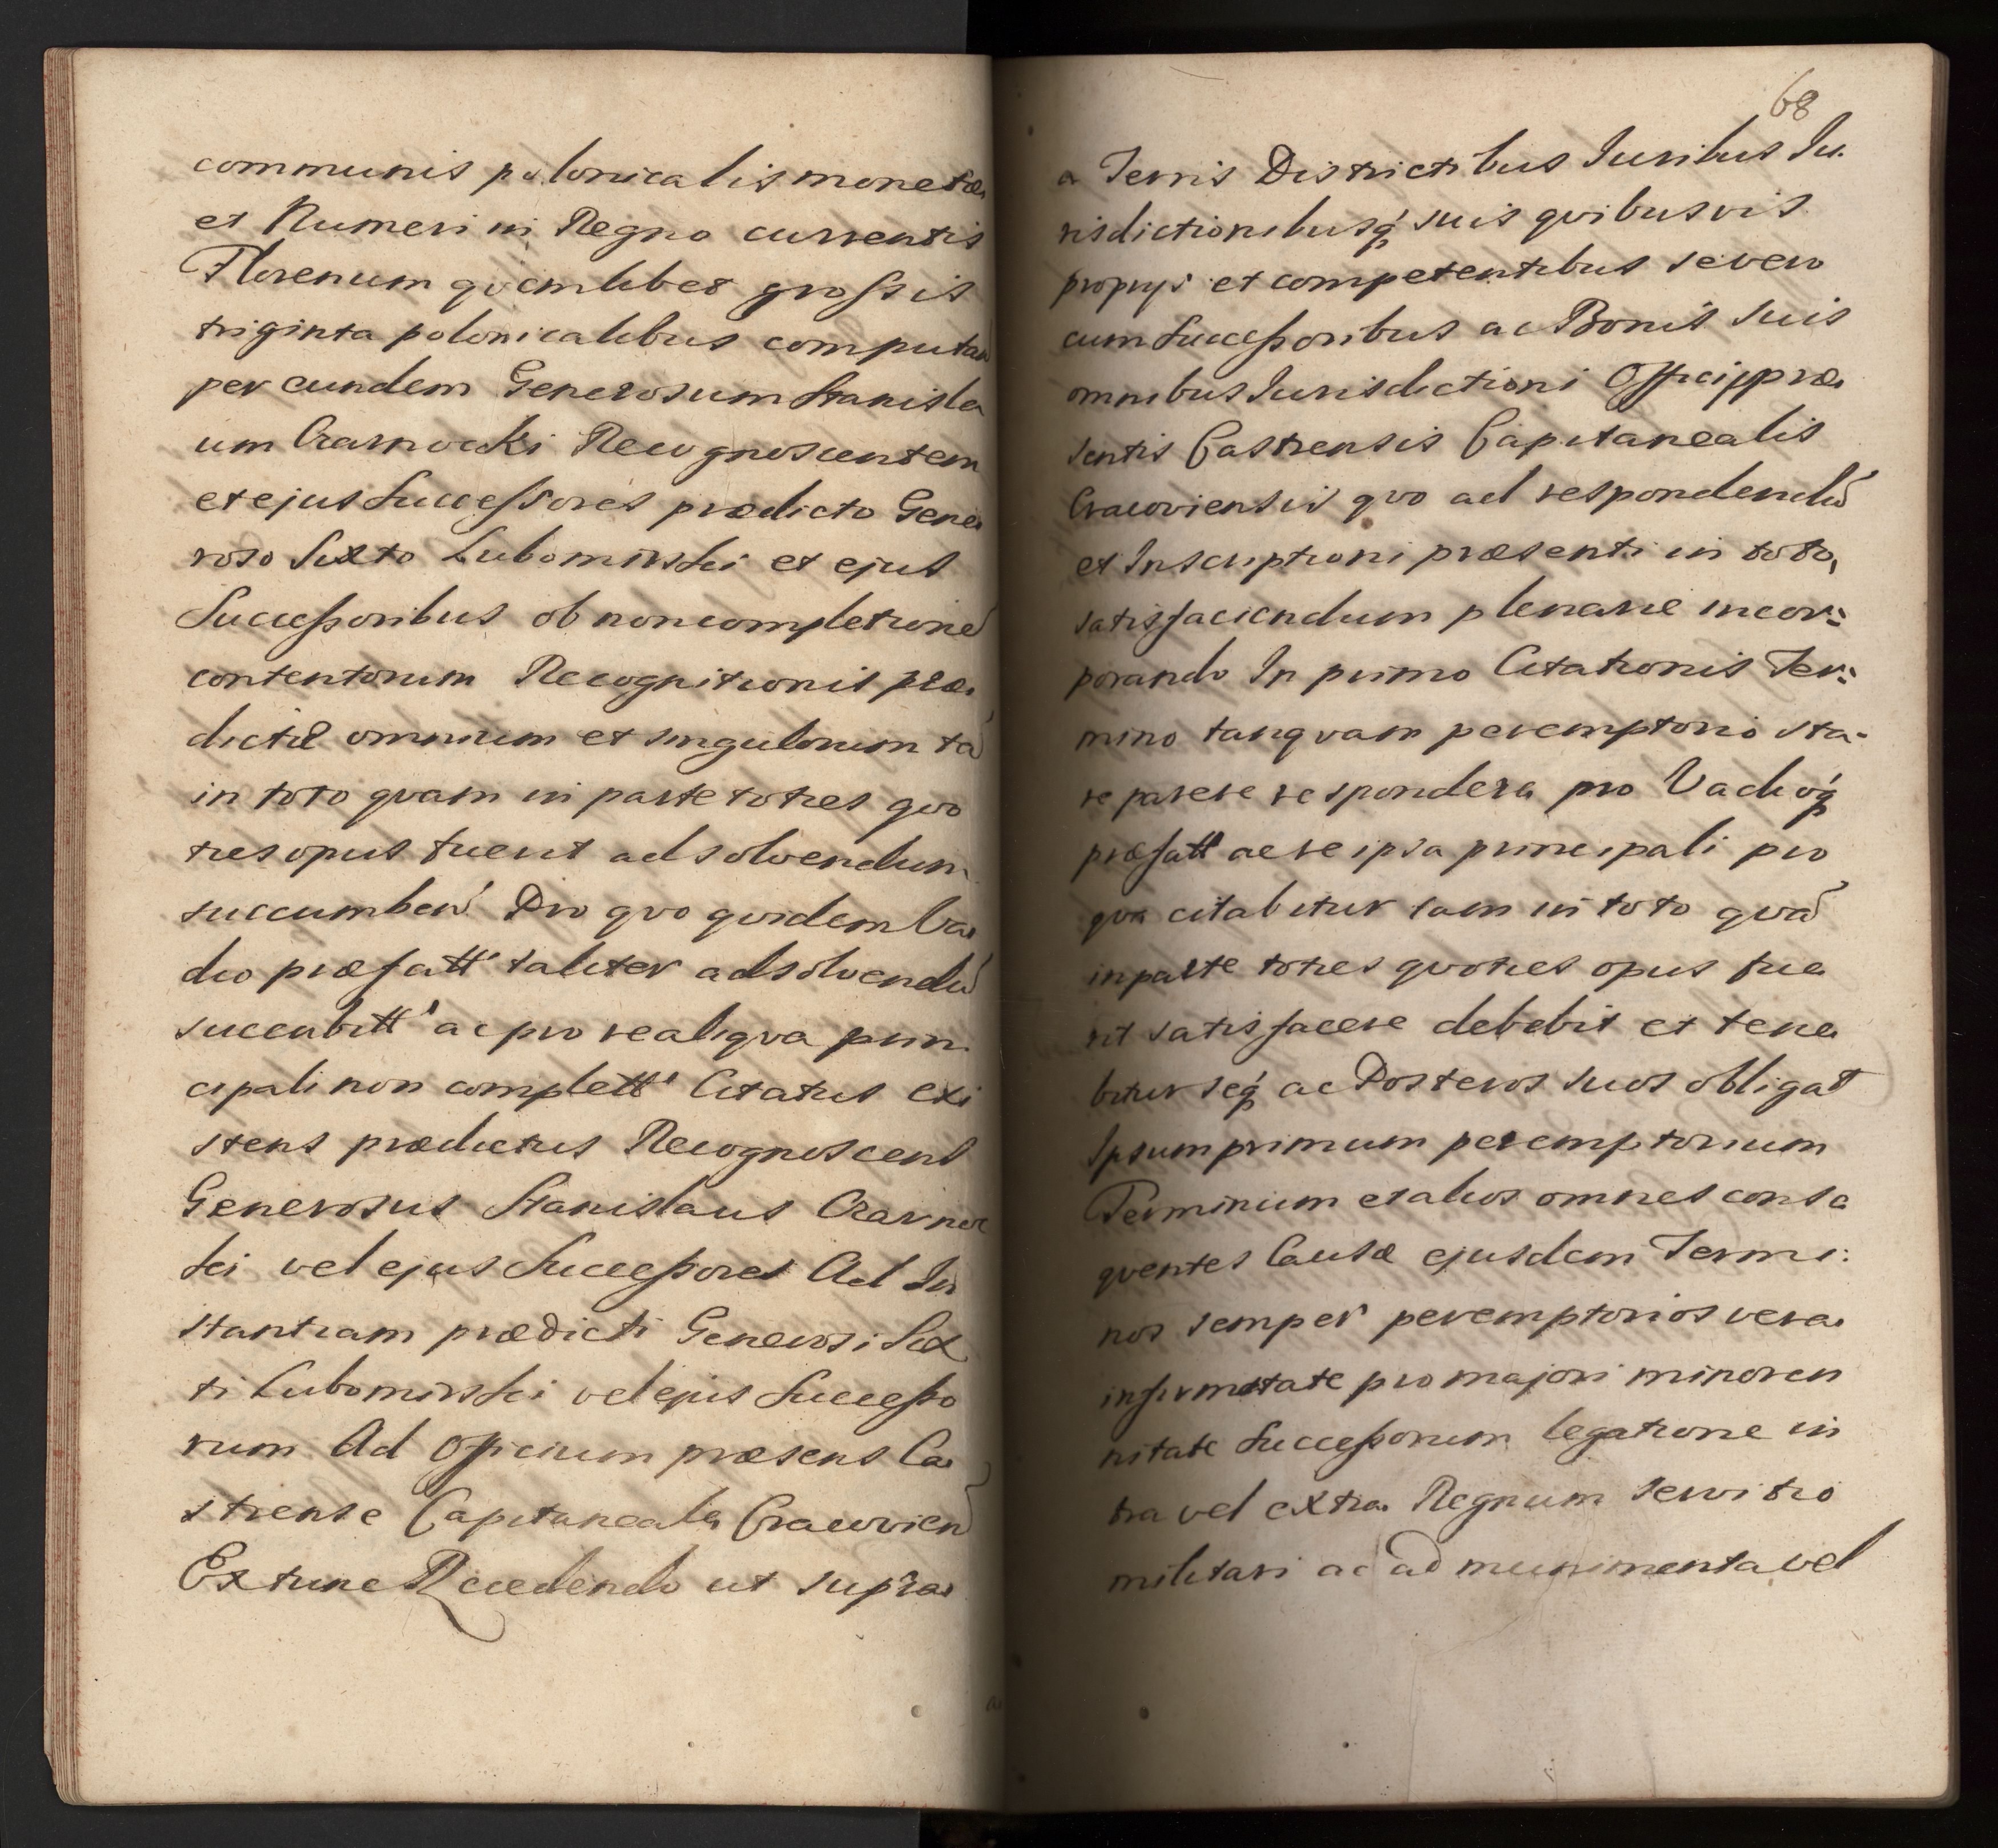 communis polonicalis monetæ
et Numeri in Regno currentis
Florenum qvemlibet grossis
triginta polonicalibus computan
per eundem Generosum Stanisla
um Czarnocki Recognoscentem
et ejus Successores prædicto Gene
roso Sixto Lubomirski et ejus
Successoribus ob noncompletione
contentorum Recognitionis præ
dictæ omnium et singulorum ta
in toto qvam in parte toties qvo
ties opus fuerit adsolvendum
succumben Pro qvo qvidem Va
dio præfatt taliter adsolvendu
succubitt ac pro re aliqva prin
cipali non complett Citatus exi
stens prædictus Recognoscens
Generosus Stanislaus Czarnoc
ki vel ejus Successores Ad In
stantiam prædicti Generosi Six
ti Lubomirski vel ejus Successo
rum Ad Officium præsens Ca
strense Capitaneale Cracovien
Extunc Recedendo ut supra
68
a Terris Districtibus Iuribus Iu
risdictionibusq suis qvibusvis
proprys et competentibus severo
cum Successoribus ac Bonis suis
omnibus Iurisdictioni Officij præ
sentis Castrensis Capitanealis
Cracoviensis qvo ad respondendu
et Inscriptioni præsenti in toto
satisfaciendum plenarie incor:
porando In primo Citationis Ter:
mino tanqvam peremptorio sta-
re parere respondere pro Vadioq
præfatt ac re ipsa principali pro
qva citabitur tam in toto qva
in parte toties qvoties opus fue
rit satisfacere debebit et tene
bitur seq ac Posteros suos obligat
Ipsum primum peremptorium
Terminum et alios omnes conse
qventes Causæ ejusdem Termi:
nos semper peremptorios vera
infirmitate pro majori minoren
nitate Successorum legatione in
tra vel extra Regnum servitio
militari ac ad munimenta vel